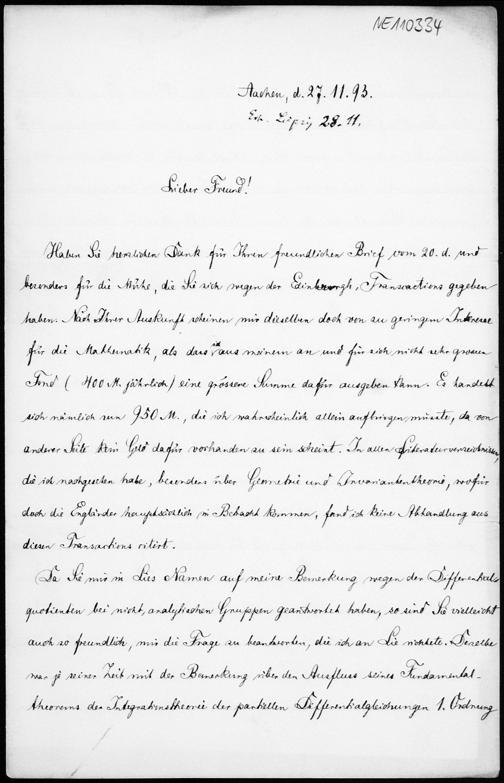 NE110334
Aachen, d. 27. 11. 93.
Erh. Leipzig 28. 11.
Lieber Freund!
Haben Sie herzlichen Dank für Ihren freundlichen Brief vom 20. d. und
besonders für die Mühe, die Sie sich wegen der Edinburgh, Transactions gegeben
haben. Nach Ihrer Auskunft scheinen mir dieselben doch von zu geringem Interesse
für die Mathematik, als dass ich aus meinem an und für sich nicht sehr grossen
Fond (400 M. jährlich) eine grössere Summe dafür ausgeben kann. Es handelt
sich nämlich um 950 M., die ich wahrscheinlich allein aufbringen müsste, da von
anderer Seite kein Geld dafür vorhanden zu sein scheint. In allen Literaturverzeichnissen,
die ich nachgesehen habe, besonders über Geometrie und Invariantentheorie, wofür
doch die Engländer hauptsächlich in Betracht kommen, fand ich keine Abhandlung aus
diesen Transactions citirt.
Da Sie mir in Lies Namen auf meine Bemerkung wegen der Differential-
quotienten bei nicht analytischen Gruppen geantwortet haben, so sind Sie vielleicht
auch so freundlich, mir die Frage zu beantworten, die ich an Lie richtete. Derselbe
war ja seiner Zeit mit der Bemerkung über den Ausfluss seines Fundamental-
theorems der Integrationstheorie der partiellen Differentialgleichungen 1. Ordnung